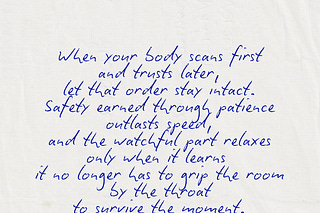 When your body scans first
and trusts later,
let that order stay intact.
Safety earned through patience
outlasts speed,
and the watchful part relaxes
only when it learns
it no longer has to grip the room
by the throat
to survive the moment.